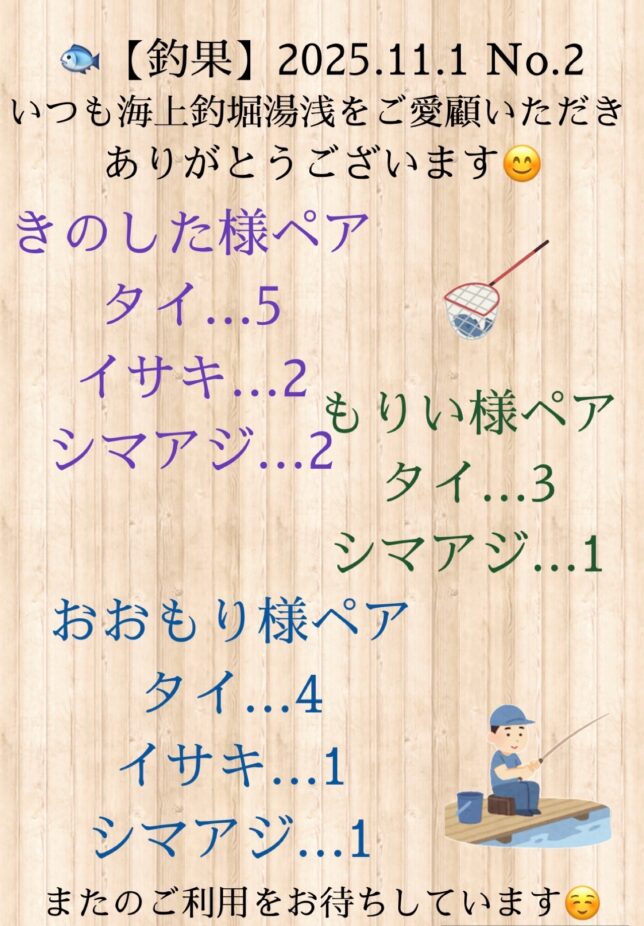 🐟【釣果】2025.11.1 No.2
いつも海上釣堀湯浅をご愛顧いただき
ありがとうございます😊
きのした様ペア
タイ…5
イサキ…2
シマアジ…2
もりい様ペア
タイ…3
シマアジ…1
おおもり様ペア
タイ…4
イサキ…1
シマアジ…1
またのご利用をお待ちしています☺️